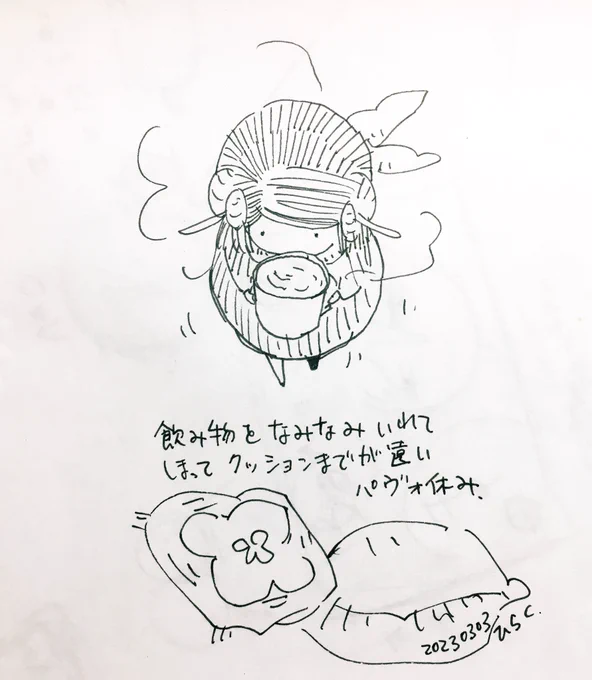 飲み物を なみなみ いれて
しまって クッションまでが遠い
パヴォ休み、
20230303/ひらく.